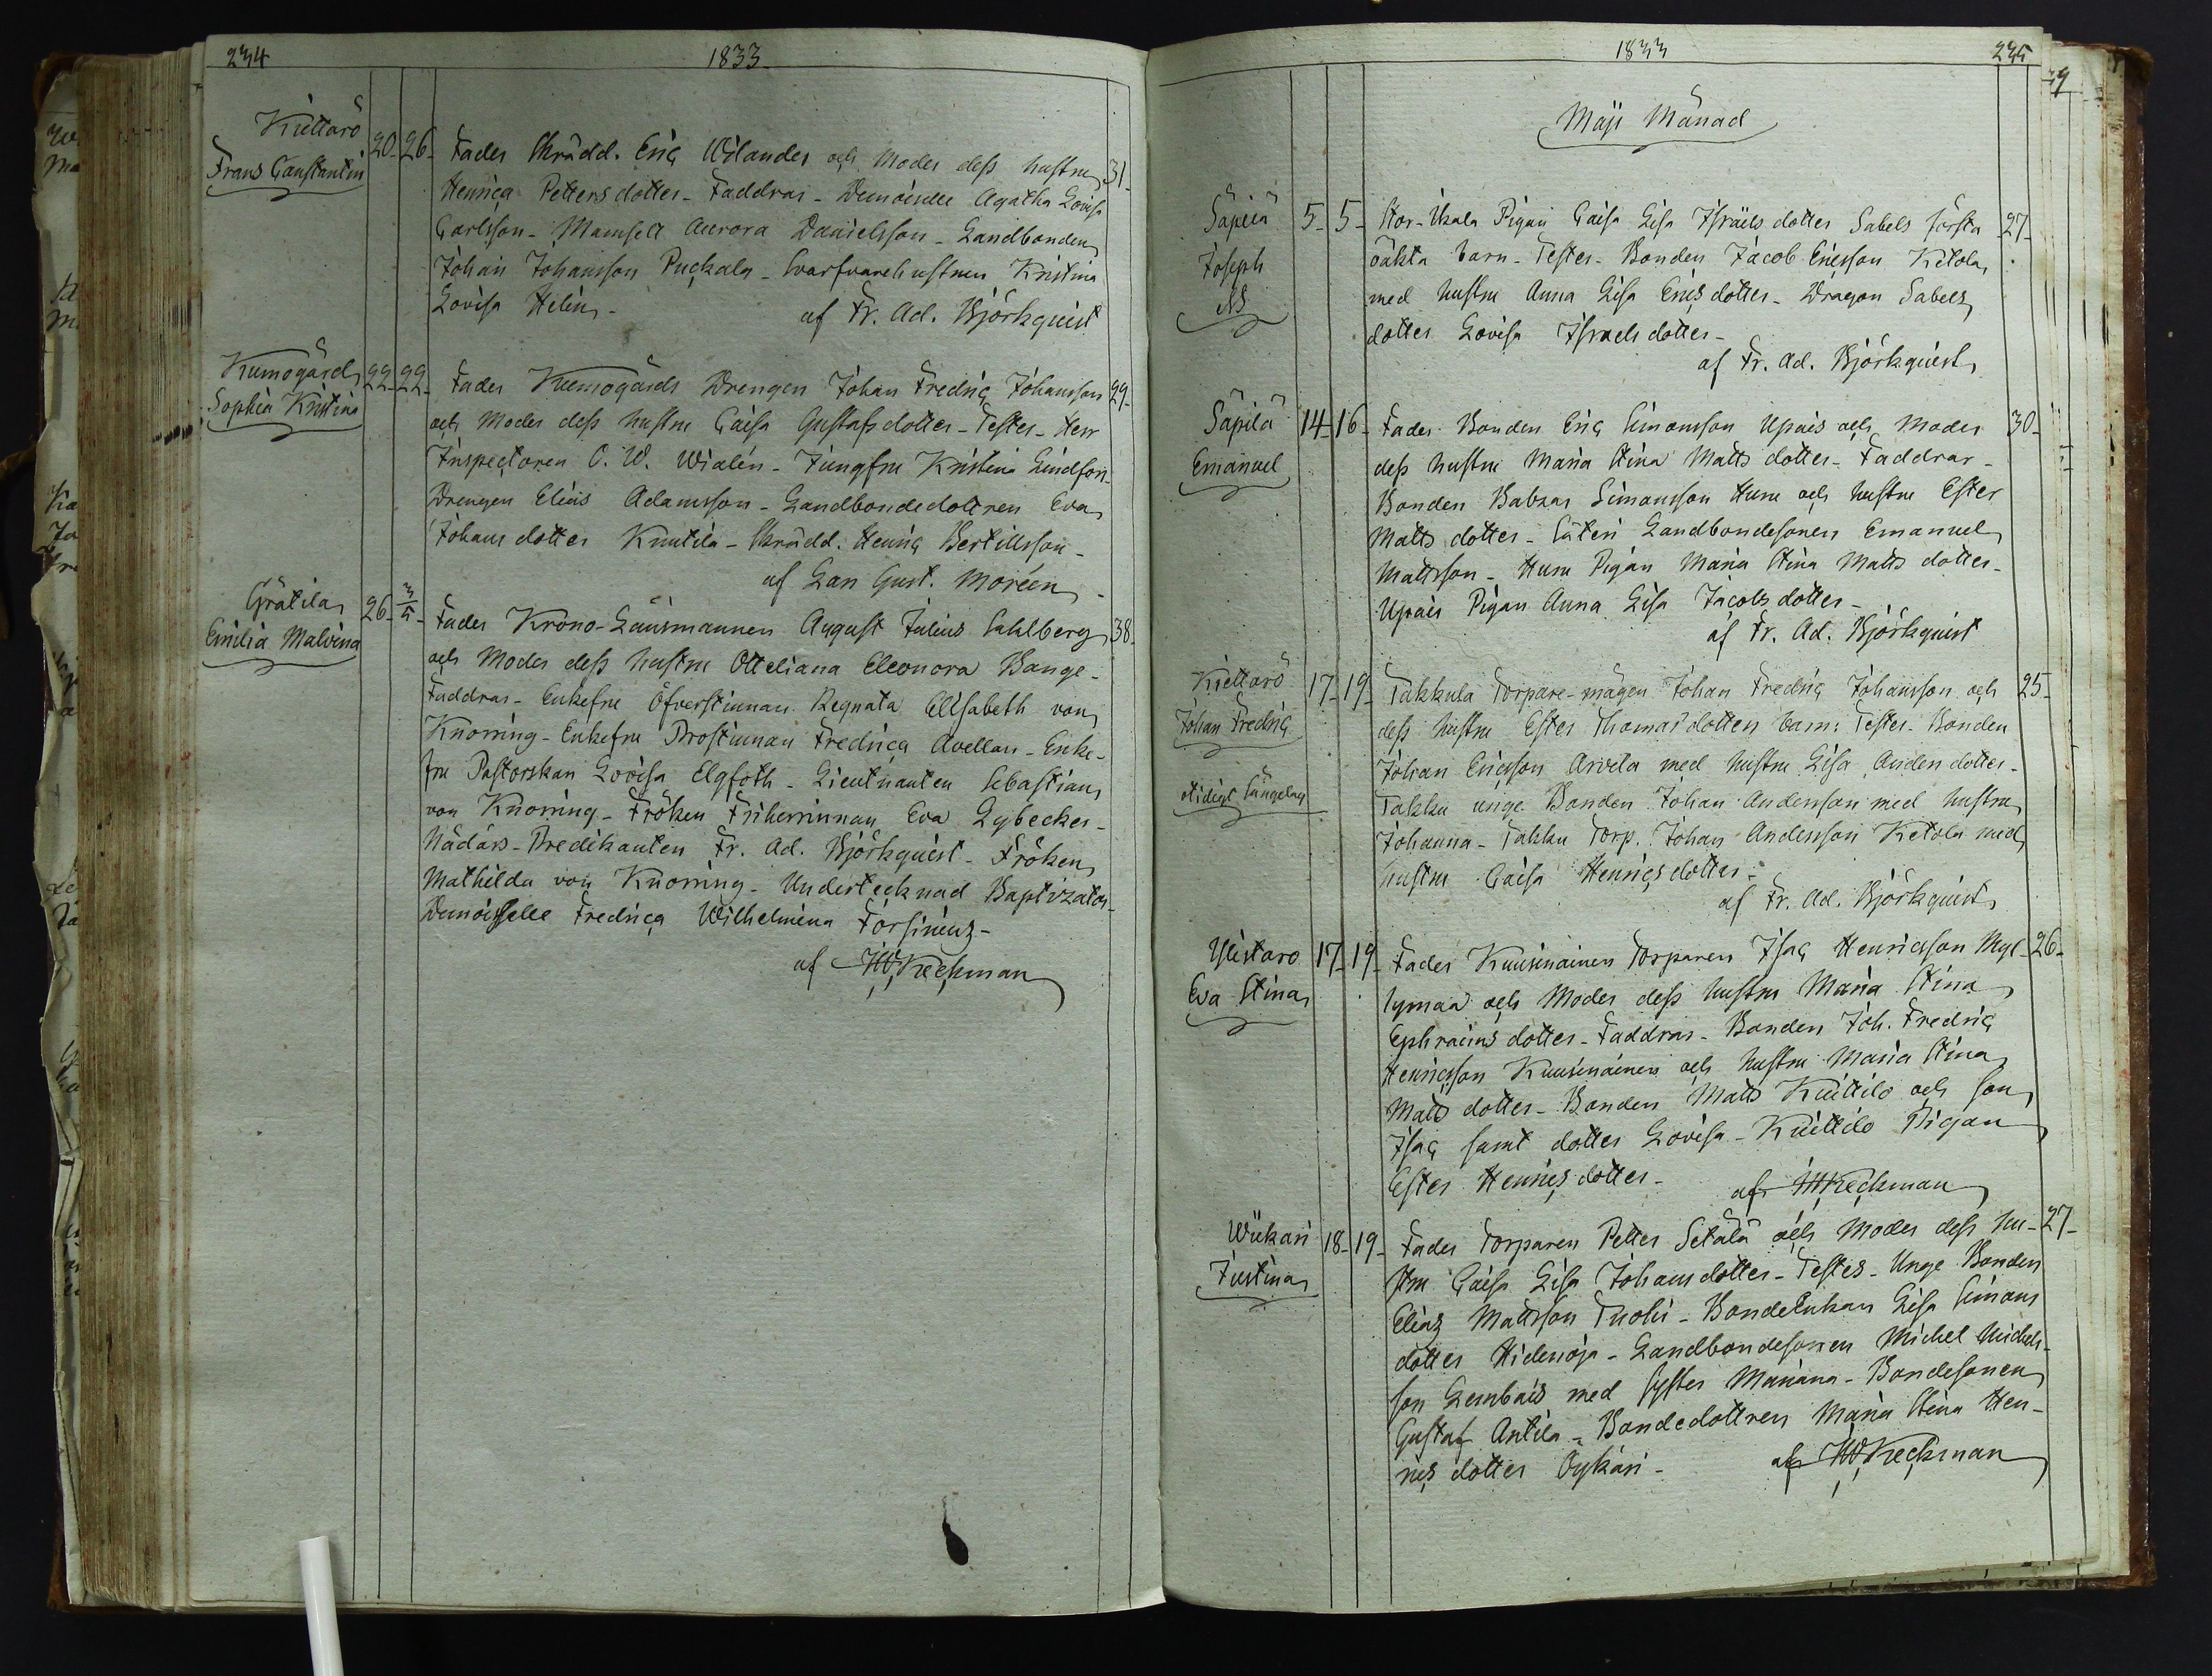 234
1833
Kiettarö
Frans Constantin
20. 26.
Fader Skrädd. Eric Wilander och Moder dess hustru 31.
Henrica Pettersdotter - Faddrar - Demoiselle Agatha Lovisa
Carlsson - Mamsell Aurora Danielsson - Landbonden
Johan Johansson Puckala - Svarfvarehustrun Kristina
Lovisa Helin -
af Fr. Ad. Björkquist
Kumogård
Sophia Kristina
22. 22.
Fader Kumogårds Drengen Johan Fredric Johansson 29.
och Moder dess hustru Caisa Gustafsdotter - Testes - Herr
Inspectoren C. W. Widlén - Jungfru Kristina Lindfors -
Drengen Elias Adamsson - Landbondedottren Eva
Johansdotter Knutila - Skrädd. Henric Bertillsson -
af Gust. Moréen
Grätila
Emilia Malvina
26. 3/5.
Fader Krono-Länsmannen August Julius Sahlberg 38.
och Moder dess hustru Otteliana Eleonora Bange -
Faddrar - Enkefru Öfverstinnan Regnata Elisabeth von
Knorring - Enkefru Prostinnan Fredrica Avellan - Enke-
fru Pastorskan Lovisa Elgfoth - Lieutnanten Sebastian
von Knorring - Fröken Friherrinnan Eva Lybecker -
Nådårs-Predikanten Fr. Ad. Björkquist - Fröken
Mathilda von Knorring - Undertecknad Baptizator -
Demoiselle Fredrica Wilhelmina Forsinius -
af Keckman
1833
235
Maji Månad
Säpilä
Joseph
5. 5.
Stor-Ikala Pigan Caisa Lisa Israëlsdotter Sabels första 27.
oäkta barn - Testes - Bonden Jacob Ericsson Ketola
med hustru Anna Lisa Ericsdotter - Dragon Sabels
dotter Lovisa Israelsdotter -
af Fr. Ad. Björkquist
Säpilä
Emanuel
14. 16.
Fader Bonden Eric Simonsson Upais och Moder 30.
dess hustru Maria Stina Mattsdotter - Faddrar -
Bonden Balzar Simonsson Huru och hustru Ester
Mattsdotter - Säteri Landbondesonen Emanuel
Mattsson - Huru Pigan Maria Stina Mattsdotter -
Upais Pigan Anna Lisa Jacobsdotter -
af Fr. Ad. Björkquist
Kiettarö
Johan Fredric
17. 19.
Takkula Torpare-mågen Johan Fredric Johansson och 25.
dess hustru Ester Thomasdotters barn: Testes - Bonden
Johan Ericsson Arvela med hustru Lisa Andersdotter -
Takku unge Bonden Johan Andersson med hustru
Johanna - Takku Torp. Johan Andersson Ketola med
hustru Caisa Henricsdotter -
af Fr. Ad. Björkquist
Ylistaro
Eva Stina
17. 19.
Fader Kuusinainen Torparen Isac Henricsson Myl- 26.
lymaa och Moder dess hustru Maria Stina
Ephraimsdotter - Faddrar - Bonden Joh. Fredric
Henricsson Kuusinainen och hustru Maria Stina
Mattsdotter - Bonden Matts Kuittilo och son
Isac samt dotter Lovisa - Kuittilo Pigan
Ester Henricsdotter -
af Keckman
Wiikari
Justina
18. 19.
Fader Torparen Petter Setälä och Moder dess hu- 27.
stru Caisa Lisa Johansdotter - Testes - Unge Bonden
Elias Mattsson Tuohi - BondeEnkan Lisa Simons
dotter Hidenoja - Landbondesonen Michel Michels-
son Lembais med syster Mariana - Bondesonen
Gustaf Antila - Bondedottren Maria Stina Hen-
ricsdotter Öykäri -
af Keckman